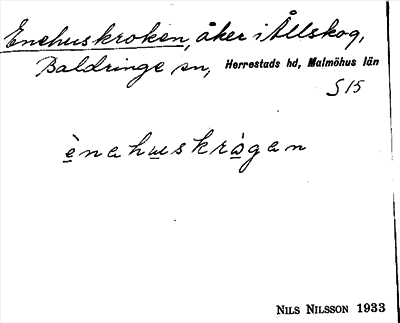 Enehuskroken, åker i Ållskog,
Baldringe sn, Herrestads hd, Malmöhus län
S 15
ènahuskrògan
NILS NILSSON 1933